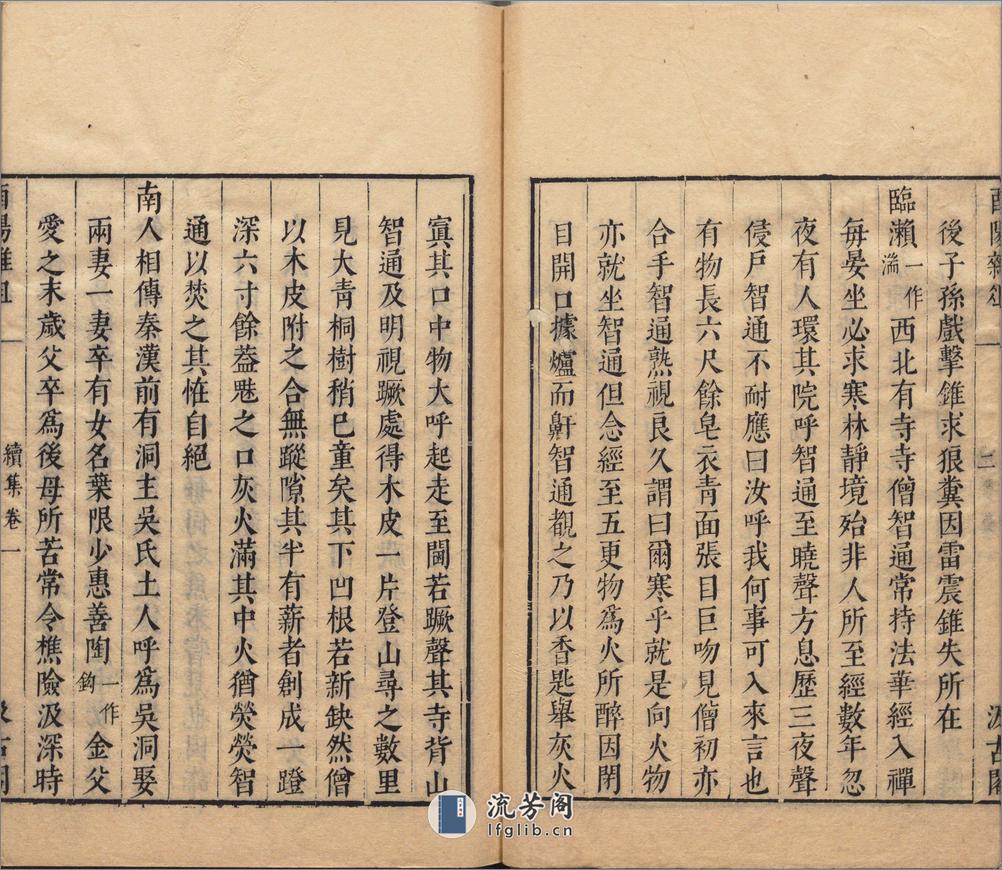 酉陽雜俎 一 二 汲古閣
後子孫戲擊錐求狼糞因雷震錐失所在
臨瀨一作湍西北有寺寺僧智通常持法華經入禪
每晏坐必求寒林靜境殆非人所至經數年忽
夜有人環其院呼智通至曉聲方息歷三夜聲
侵戶智通不耐應曰汝呼我何事可入來言也
有物長六尺餘皂衣青面張目巨吻見僧初亦
合手智通熟視良久謂曰爾寒乎就是向火物
亦就坐智通但念經至五更物爲火所醉因閉
目開口據爐而鼾智通覩之乃以香匙舉灰火
寘其口中物大呼起走至閫若蹶聲其寺背山
智通及明視蹶處得木皮一片登山尋之數里
見大青桐樹稍巳童矣其下凹根若新缺然僧
以木皮附之合無蹤隙其半有薪者創成一蹬
深六寸餘葢魅之口灰火滿其中火猶熒熒智
通以焚之其恠自絕
南人相傳秦漢前有洞主吳氏土人呼爲吳洞娶
兩妻一妻卒有女名葉限少惠善陶一作鈎金父
愛之末歲父卒爲後母所苦常令樵險汲深時
酉陽雜俎 一 續集卷一 汲古閣
流芳阁
lfglib.cn